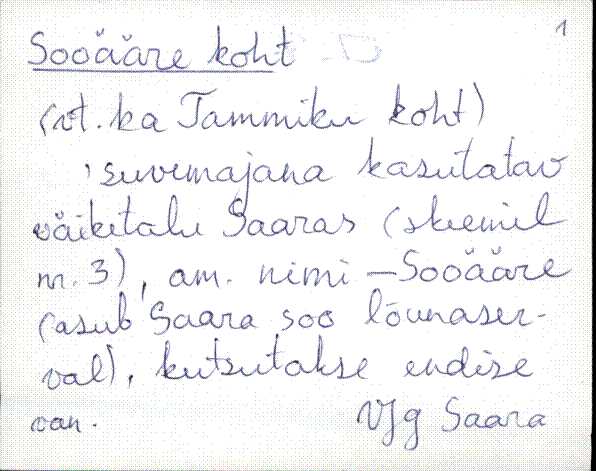 1
Sooääre koht
(vt. ka Tammiku koht)
, suvemajana kasutatav
väiketalu Saaras (skeemil
nr. 3), am. nimi – Sooääre
(asub Saara soo lõunaser-
val), kutsutakse endise
van. VJg Saara